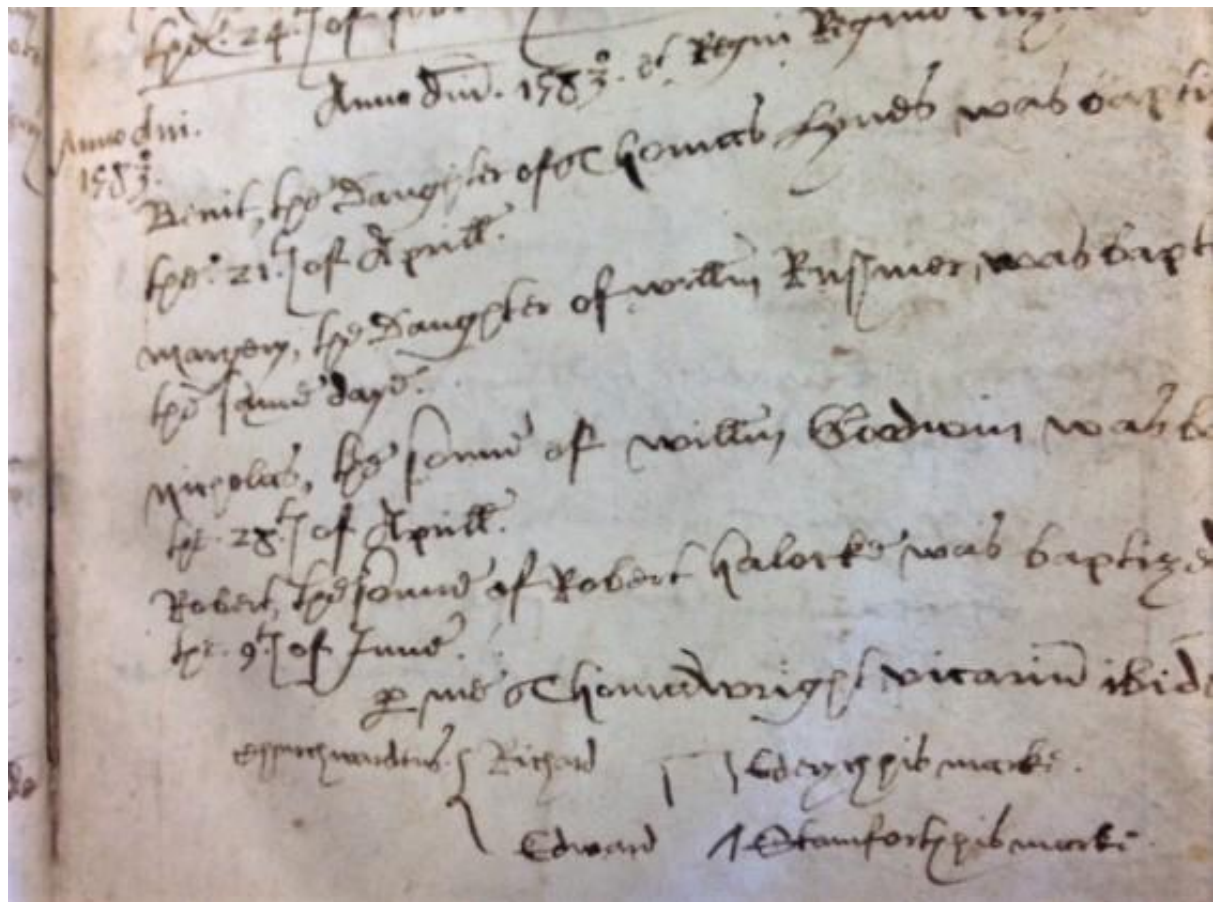 the 24th of
Anno dni. 1583. et Regni Regine
Anno dni.
1583.
Benit, the Daughter of Thomas Lynes was bapti
the 21th of Aprill.
Margery, the Daughter of willm Russmer, was bapt
the same daye.
Nicholas, the sonne of willm Goodwin was b
the 28th of Aprill.
Robert, the sonne of Robert halocke was baptized
the 9th of June.
me Thomas wright vicarium ibid
Churchwardens Richard his marke.
Edward Stamforth his marke.